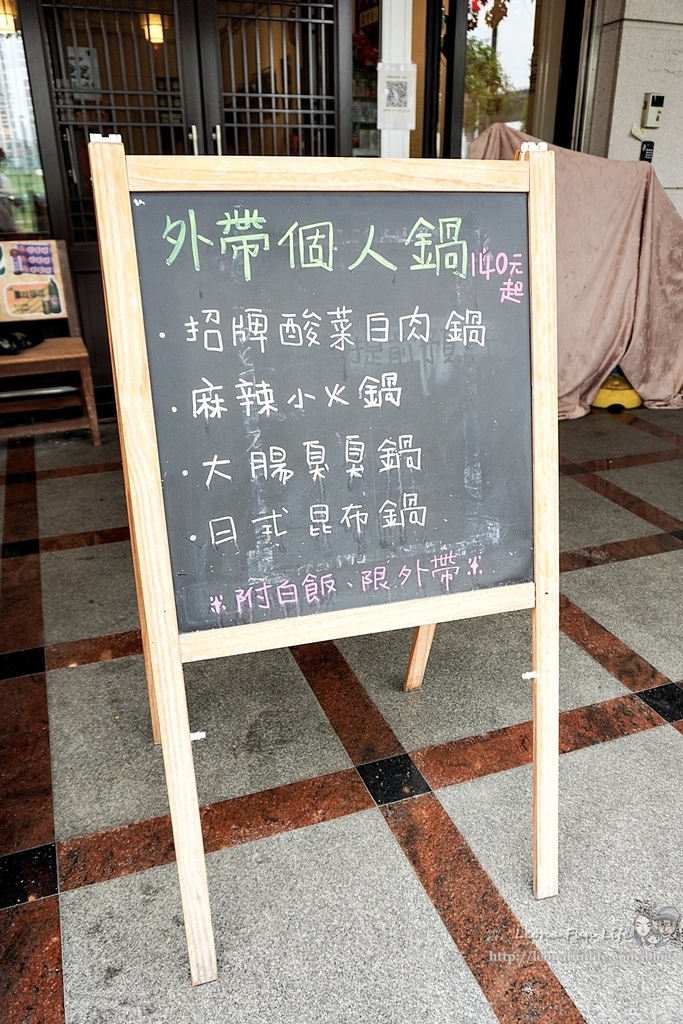 外帶個人鍋 140元起
· 招牌酸菜白肉鍋
· 麻辣小火鍋
· 大腸臭臭鍋
· 日式昆布鍋
※附白飯、限外帶※